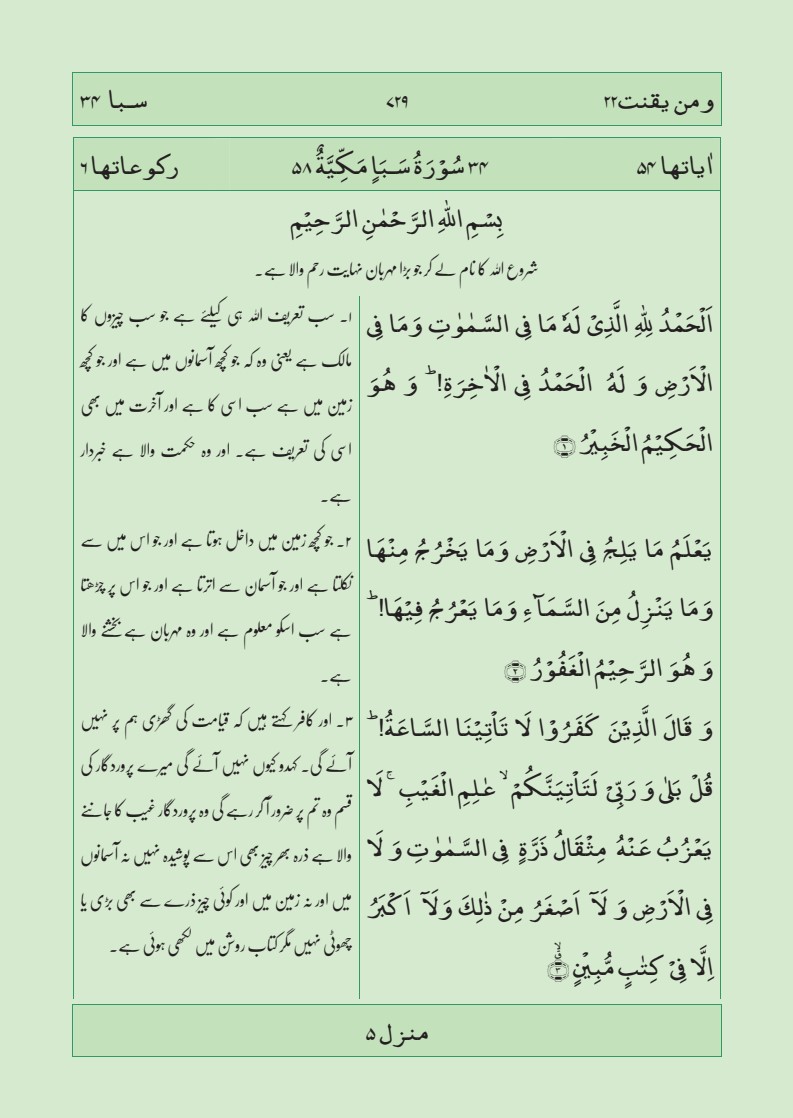 ومن یقنت۲۲ ۷۲۹ سبا ۳۴
اٰیاتها ۵۴ ۳۴ سُوۡرَةُ سَـبَاٍ مَکِّیَّةٌ ۵۸ رکوعاتها ۶
بِسۡمِ اللّٰهِ الرَّحۡمٰنِ الرَّحِیۡمِ
شروع اللہ کا نام لے کر جو بڑا مہربان نہایت رحم والا ہے۔
اَلۡحَمۡدُ لِلّٰهِ الَّذِیۡ لَهٗ مَا فِی السَّمٰوٰتِ وَ مَا فِی
الۡاَرۡضِ وَ لَهُ الۡحَمۡدُ فِی الۡاٰخِرَةِ!ؕ وَ هُوَ
الۡحَکِیۡمُ الۡخَبِیۡرُ ﴿۱﴾
یَعۡلَمُ مَا یَلِجُ فِی الۡاَرۡضِ وَ مَا یَخۡرُجُ مِنۡهَا
وَ مَا یَنۡزِلُ مِنَ السَّمَآءِ وَ مَا یَعۡرُجُ فِیۡهَا!ؕ
وَ هُوَ الرَّحِیۡمُ الۡغَفُوۡرُ ﴿۲﴾
وَ قَالَ الَّذِیۡنَ کَفَرُوۡا لَا تَاۡتِیۡنَا السَّاعَةُ!ؕ
قُلۡ بَلٰی وَ رَبِّیۡ لَتَاۡتِیَنَّکُمۡ ۙ عٰلِمِ الۡغَیۡبِ ۚ لَا
یَعۡزُبُ عَنۡهُ مِثۡقَالُ ذَرَّةٍ فِی السَّمٰوٰتِ وَ لَا
فِی الۡاَرۡضِ وَ لَاۤ اَصۡغَرُ مِنۡ ذٰلِکَ وَ لَاۤ اَکۡبَرُ
اِلَّا فِیۡ کِتٰبٍ مُّبِیۡنٍ ﴿۳﴾ۙ
۱۔ سب تعریف اللہ ہی کیلئے ہے جو سب چیزوں کا
مالک ہے یعنی وہ کہ جو کچھ آسمانوں میں ہے اور جو کچھ
زمین میں ہے سب اسی کا ہے اور آخرت میں بھی
اسی کی تعریف ہے۔ اور وہ حکمت والا ہے خبردار
ہے۔
۲۔ جو کچھ زمین میں داخل ہوتا ہے اور جو اس میں سے
نکلتا ہے اور جو آسمان سے اترتا ہے اور جو اس پر چڑھتا
ہے سب اسکو معلوم ہے اور وہ مہربان ہے بخشنے والا
ہے۔
۳۔ اور کافر کہتے ہیں کہ قیامت کی گھڑی ہم پر نہیں
آئے گی۔ کہدو کیوں نہیں آئے گی میرے پروردگار کی
قسم وہ تم پر ضرور آ کر رہے گی وہ پروردگار غیب کا جاننے
والا ہے ذرہ بھر چیز بھی اس سے پوشیدہ نہیں نہ آسمانوں
میں اور نہ زمین میں اور کوئی چیز ذرے سے بھی بڑی یا
چھوٹی نہیں مگر کتاب روشن میں لکھی ہوئی ہے۔
منزل ۵